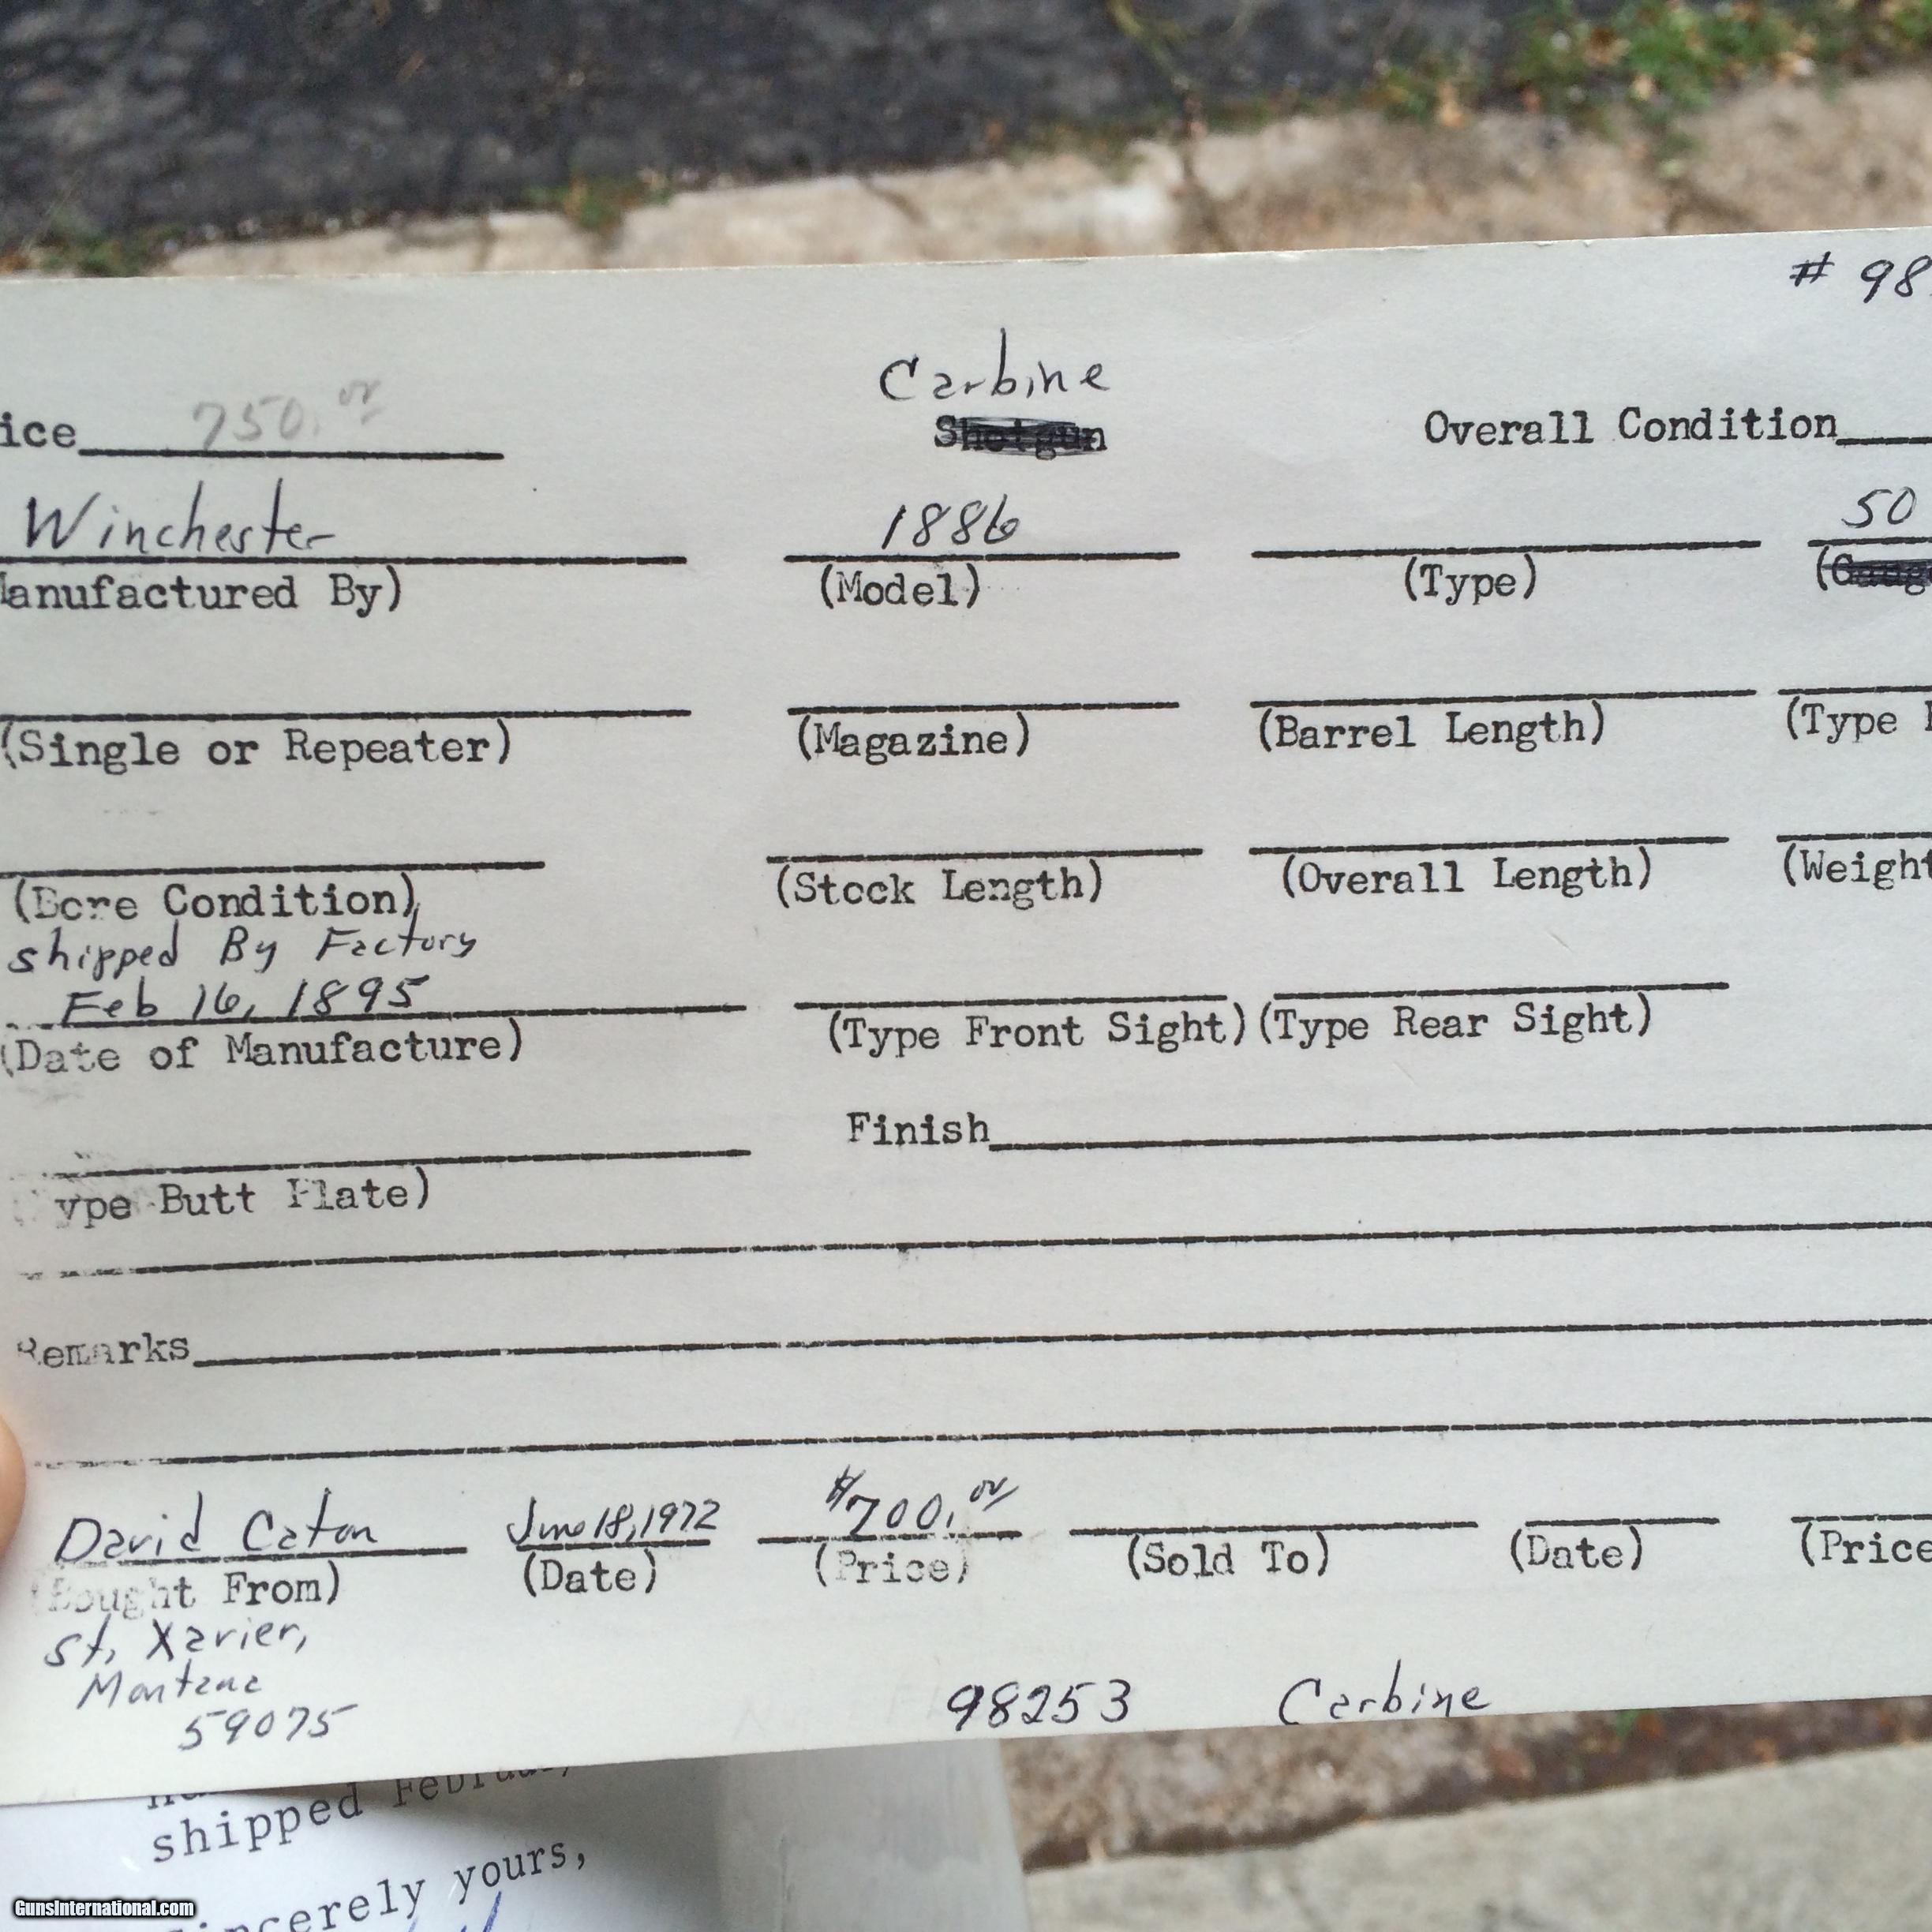 # 98
Carbine
ice 750.00 Shotgun Overall Condition
Winchester 1886 50
anufactured By) (Model) (Type) (Gauge
(Single or Repeater) (Magazine) (Barrel Length) (Type
(Bore Condition) (Stock Length) (Overall Length) (Weight
shipped By Factory
Feb 16, 1895
(Date of Manufacture) (Type Front Sight) (Type Rear Sight)
Finish
ype Butt Plate)
Remarks
David Caton June 18, 1972 $700.00
(Bought From) (Date) (Price) (Sold To) (Date) (Price
St, Xavier,
Montana
59075
98253 Carbine
shipped February
Sincerely yours,
GunsInternational.com